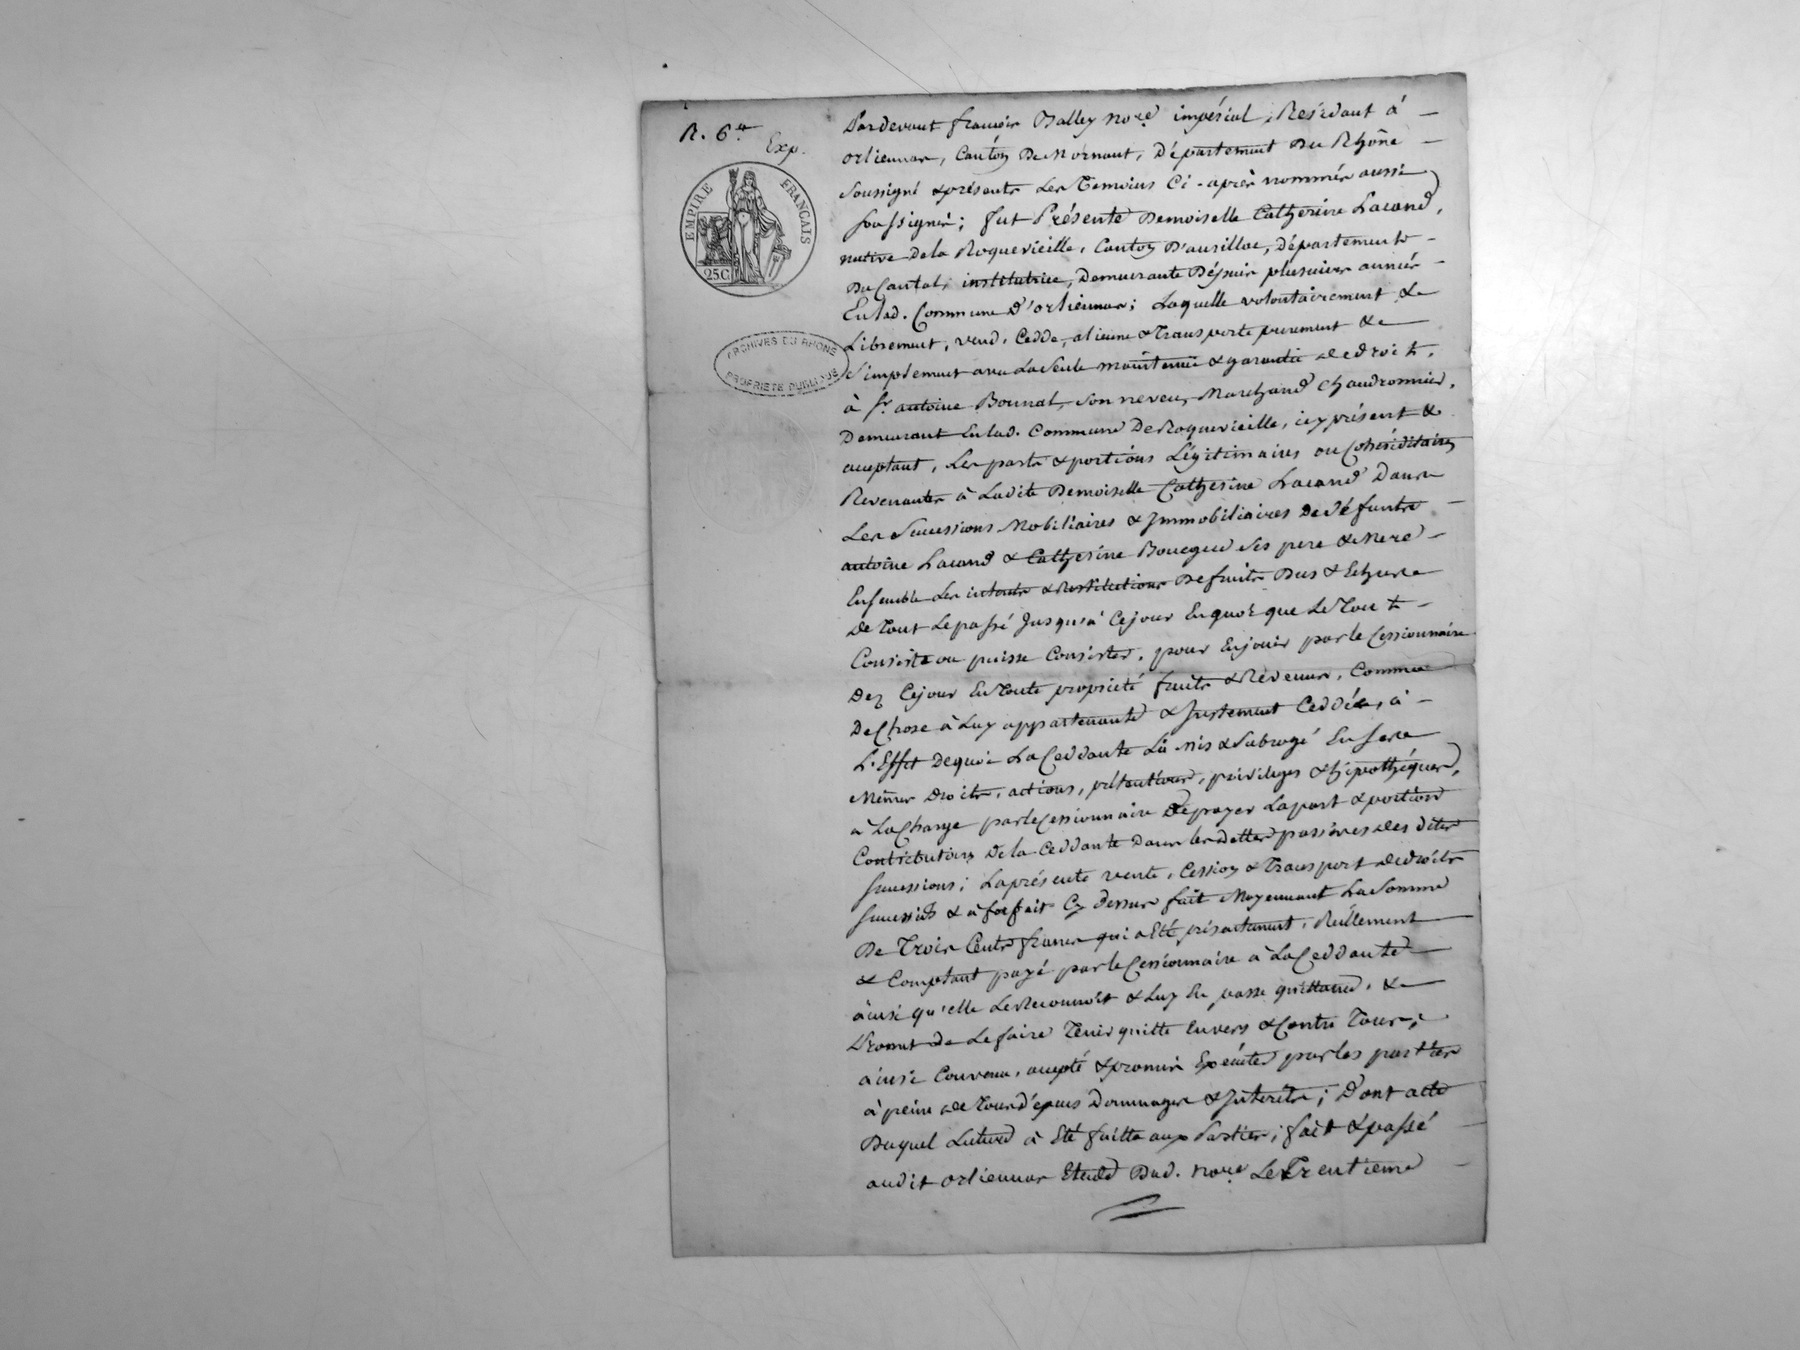 R. 6.te
Exp.
EMPIRE FRANCAIS
25C
ARCHIVES DU RHONE
PROPRIETE PUBLIQUE
Pardevant françois Balley no.re impérial, Résidant à
orliennas, Canton De Mornant, Département Du Rhône
soussigné & présents Les Temoins Ci-après nommés aussi
soussignés; fut Présente Demoiselle Catherine Lacand,
native De la Roquevieille, Canton D'aurillac, Département
Du Cantal, institutrice, Demeurante Dépuis plusieurs années
En lad. Commune D'orliennas; Laquelle volontairement &
Librement, vend, Cedde, aliene & Transporte purement &
simplement avec La seule maintenüe & garantie de droit,
à sr. antoine Bounal, son neveu, Marchand Chaudronnier,
Demeurant En lad. Commune De Roquevieille, icy présent &
acceptant, Les parts & portions Légitimaires ou Cohéréditaires
Revenantes à Ladite Demoiselle Catherine Lacand Dans
Les Successions Mobiliaires & Immobiliaires De défunts
antoine Lacand & Catherine Boucque ses pere & Mere
Ensemble Les intérêts & Restitutions De fruits Dus & Echus
De Tout Le passé Jusqu'à Ce jour En quoi que Le Tout
Consiste ou puisse Consister, pour En jouir par le Cessionnaire
Dez Ce jour En Toute propriété fruits & Révenus, Comme
De Chose à Luy appartenante & Justement Ceddée, à
L'Effet De quoi La Ceddante L'a mis & subrogé En ses
Mêmes Droits, actions, prétentions, privileges & hipothéques,
à La Charge par le Cessionnaire De payer La part & portion
Contributoire De la Ceddante Dans les dettes passives des dites
successions; La présente vente, Cession & Transport de droits
successifs & à forfait Cy dessus fait Moyennant La somme
De Trois Cents francs qui a Eté présentement, Réellement
& Comptant payé par le Cessionnaire à La Ceddante
ainsi qu'elle Le Reconnoit & Luy En passe quittance, &
Promet de Le faire Tenir quitte Envers & Contre Tous;
ainsi Convenu, accepté & promis Exécuter par les parties
à peine de Tous dépens Dommages & Interêts; D'ont acte
Duquel Lecture à Eté faitte aux Parties; fait & passé
audit orliennas Etude Dud. nore. Le Trentieme